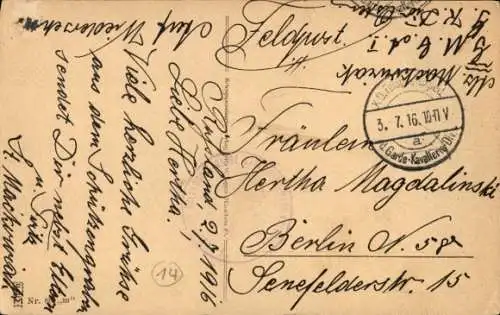 Rußland 2/7 1916
Liebe Hertha.
Viele herzliche Grüße
aus dem Schützengraben
sendet Dir nebst Eltern
u. Fritz
Mackowiak
Auf Wiedersehn
Feldpost.
Mackowiak
3. 7. 16. 10-11 V
a
Garde-Kavallerie-Div.
Fräulein
Hertha Magdalinski
Berlin N. 58
Senefelderstr. 15
14
Nr.